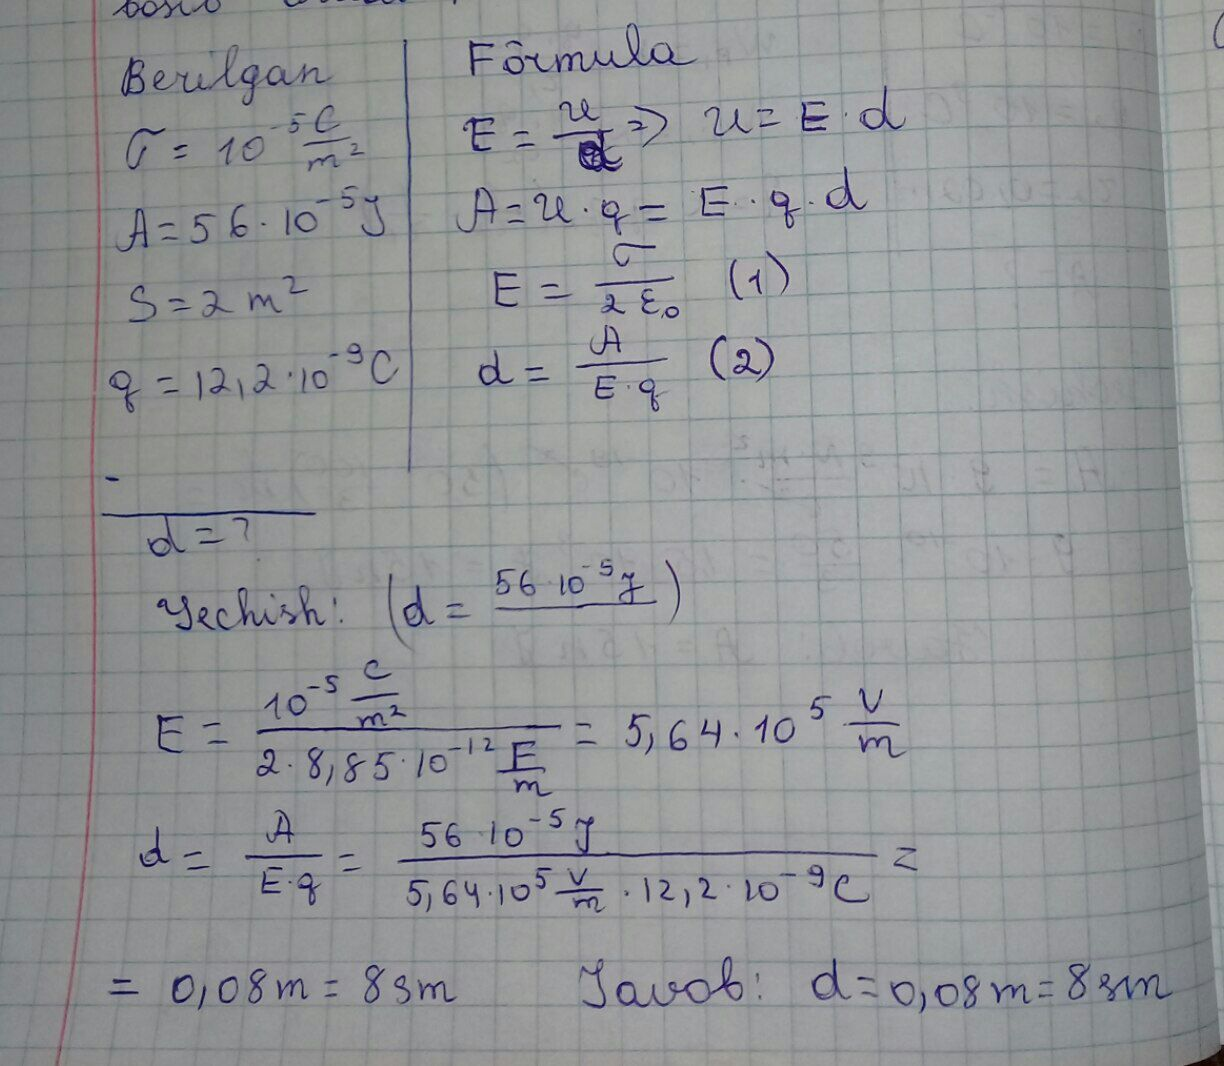 Berilgan
σ = 10⁻⁵ C/m²
A = 56·10⁻⁵ J
S = 2 m²
q = 12,2·10⁻⁹ C
d = ?
Formula
E = u/d ⇒ u = E·d
A = u·q = E·q·d
E = σ/2ε₀ (1)
d = A/E·q (2)
Yechish: (d = 56·10⁻⁵ J/ )
E = 10⁻⁵ C/m² / 2·8,85·10⁻¹² F/m = 5,64·10⁵ V/m
d = A/E·q = 56·10⁻⁵ J / 5,64·10⁵ V/m · 12,2·10⁻⁹ C =
= 0,08 m = 8 sm Javob: d = 0,08 m = 8 sm